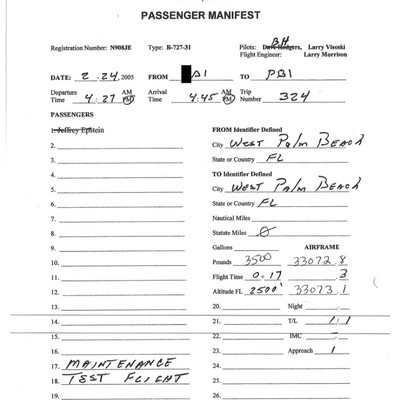 PASSENGER MANIFEST
BH
Registration Number: N908JE Type: B-727-31 Pilots: Dave Rodgers, Larry Visoski
Flight Engineer: Larry Morrison
DATE: 2.24,2005 FROM BI TO PBI
Departure Time 4:27 AM PM Arrival Time 4:45 AM PM Trip Number 324
PASSENGERS
1. Jeffrey Epstein FROM Identifier Defined
2. City WEST PALM BEACH
3. State or Country FL
4. TO Identifier Defined
5. City WEST PALM BEACH
6. State or Country FL
7. Nautical Miles
8. Statute Miles 0
9. Gallons AIRFRAME
10. Pounds 3500 33072.8
11. Flight Time 0.17 .3
12. Altitude FL 2500' 33073.1
13. 20. Night
14. 21. T/L 1/1
15. 22. IMC
16. 23. Approach 1
17. MAINTENANCE 24.
18. TEST FLIGHT 25.
19. 26.